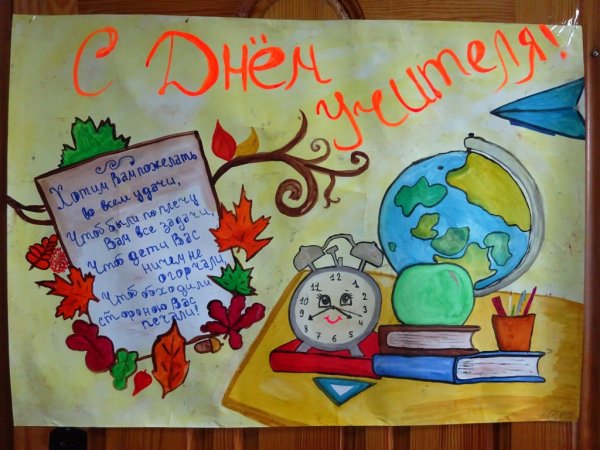 С Днём
учителя!
Хотим Вам пожелать
во всем удачи,
Чтоб были по плечу
Вам все задачи,
Чтоб дети Вас
ничем не
огорчали,
Чтоб обходили
стороною Вас
печали!
12
1
2
3
4
5
6
7
8
9
10
11